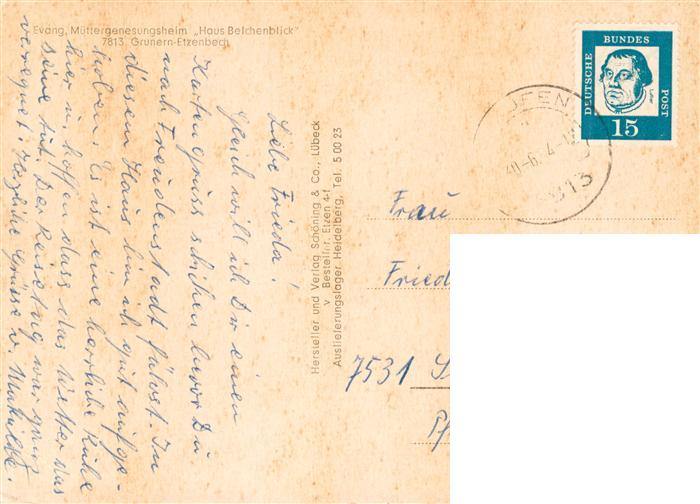 Evang. Müttergenesungsheim „Haus Belchenblick"
7813 Grunern-Etzenbach
Liebe Frieda!
Gleich will ich Dir einen
Kartengruss schicken bevor Du
nach Freudenstadt fährst. In
diesem Haus bin ich gut aufge-
hoben. Es ist eine herrliche Ruhe
hier u. hoffen dass das Wetter das
seine tut. Der Reisetag war ganz
verregnet. Herzliche Grüsse v. Mathilde.
Hersteller und Verlag Schöning & Co., Lübeck
Bestellnr. Etzen 4f
Auslieferungslager Heidelberg, Tel. 5 00 23
DEUTSCHE BUNDES POST
Luther
15
813
Frau
Fried
7531 S
Pf